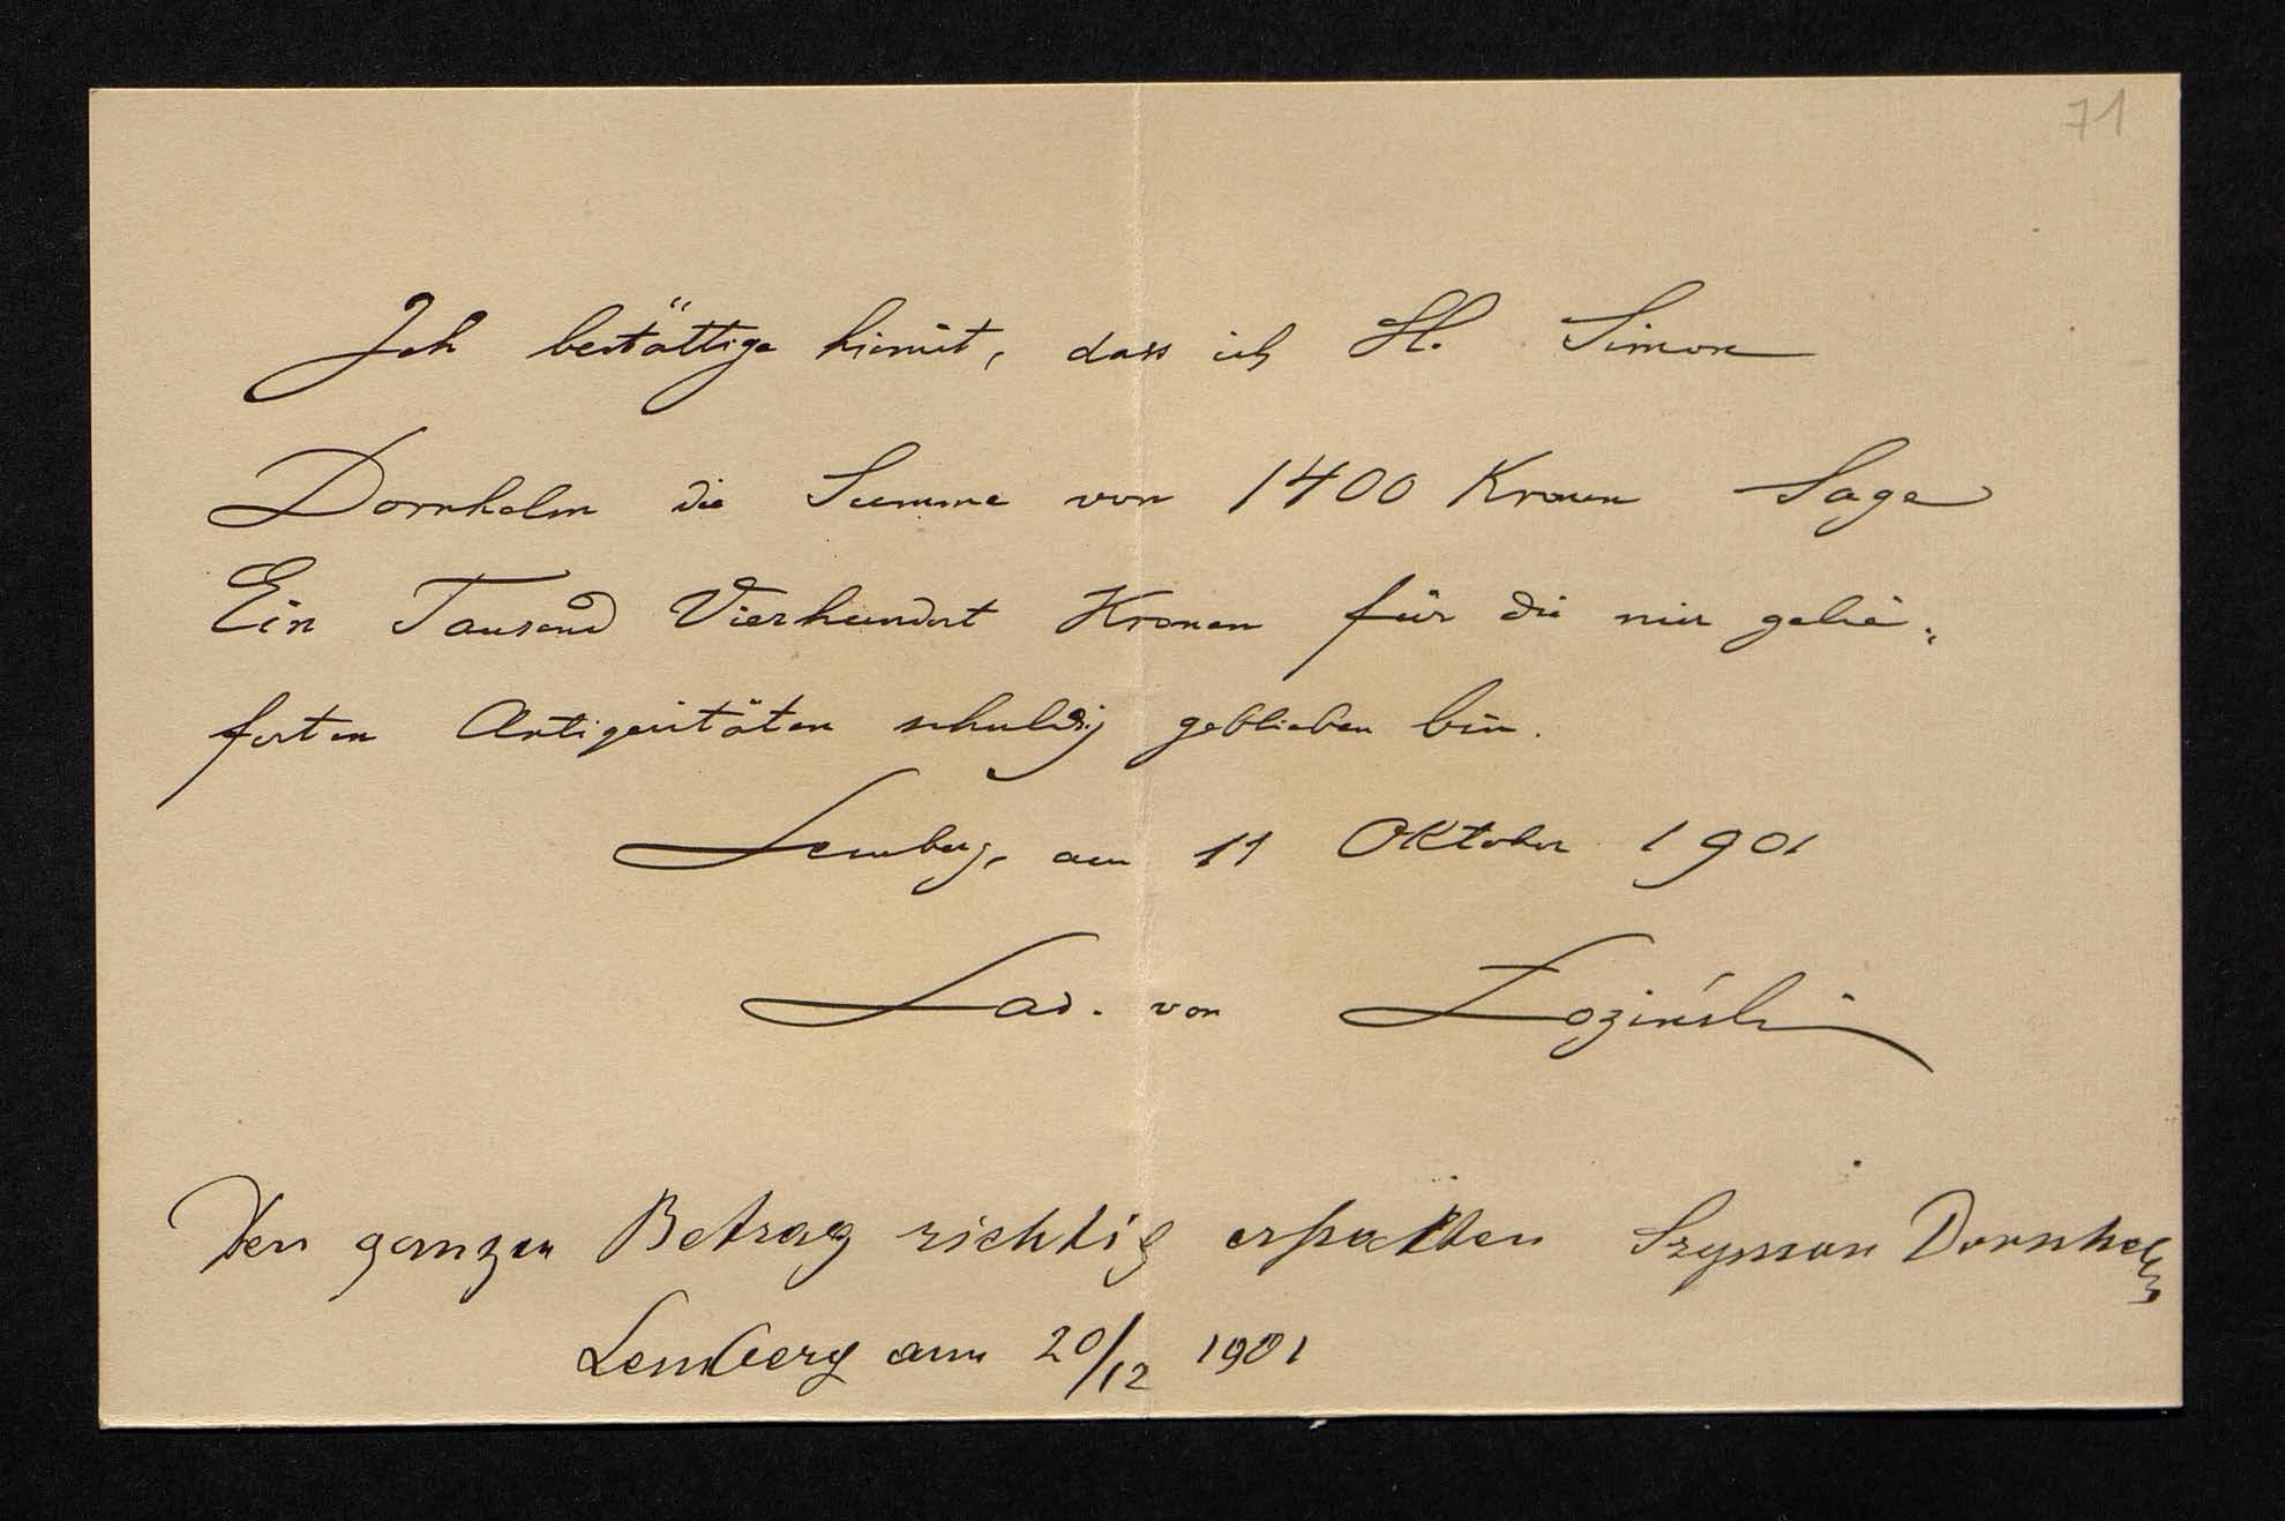 71
Ich bestättige hiemit, dass ich H. Simon
Dornhelm die Summe von 1400 Kronen Sage
Ein Tausend Vierhundert Kronen für die mir gelie„
ferten Antiquitäten schuldig geblieben bin.
Lemberg, am 11 Oktober 1901
Lad. von Łoziński
Den ganzen Betrag richtig erhalten Szymon Dornhelm
Lemberg am 20/12 1901